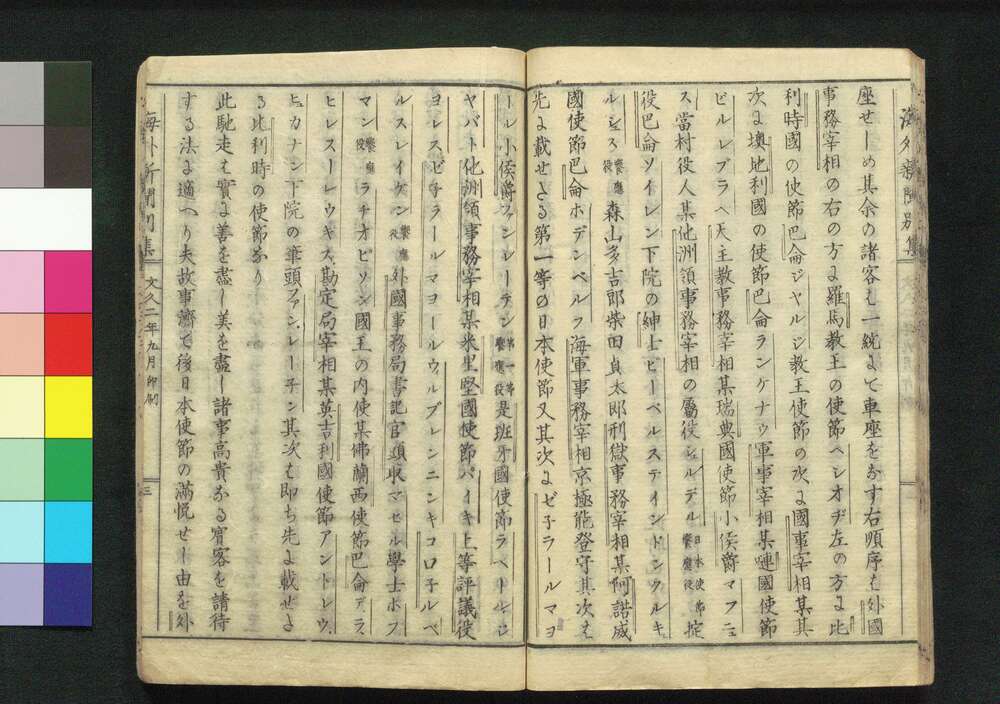 海外新聞別集
座せしめ其余の諸客は一統にて車座をなす右順序は外國
事務宰相の右の方に羅馬教王の使節ヘレオヂ左の方に比
利時國の使節巴侖ジヤルジ教王使節の次に國事宰相某其
次に墺地利國の使節巴侖ランケナウ軍事宰相某嗹國使節
ビルレブラヘ天主教事務宰相某瑞典國使節小侯爵マフニュ
ス當村役人某他洲領事務宰相の屬役シルデル日本使節饗應役掟
役巴侖ソイレン下院の紳士ビーベルステインドンクルキ
ルシュス饗應役森山多吉郎柴田貞太郎刑獄事務宰相某阿諾威
國使節巴侖ホデンベルフ海軍事務宰相京極能登守其次は
先に載せたる第一等の日本使節又其次にゼ子ラールマヨ
ール小侯爵ファンレーデン第一等饗應役是班牙國使節ラベール
ヤバト他洲領事務宰相某米里堅國使節パイキ上等評議役
ヨレスビ子ラールマヨールウルブレンニンキコロ子ルベ
ルスレイケン饗應役外國事務局書記官頭取マセル學士ホフ
マン饗應役ラチオピソン國王の内使某佛蘭西使節巴侖デラ
ヒレスーレウキス勘定局宰相某英吉利國使節アントレウ
ヒカナン下院の筆頭ファンレー子ン其次は即ち先に載せた
る比利時の使節なり
此馳走は實に善を盡し美を盡し諸事高貴なる賓客を請待
する法に適へり夫故事濟て後日本使節の滿悦せし由を外
海外新聞別集
文久二年九月印刷
三